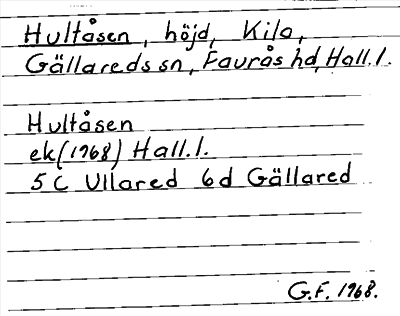 Hultåsen, höjd, Kila,
Gällareds sn, Faurås hd, Hall.l.
Hultåsen
ek(1968) Hall.l.
5 C Ullared 6d Gällared
G.F. 1968.